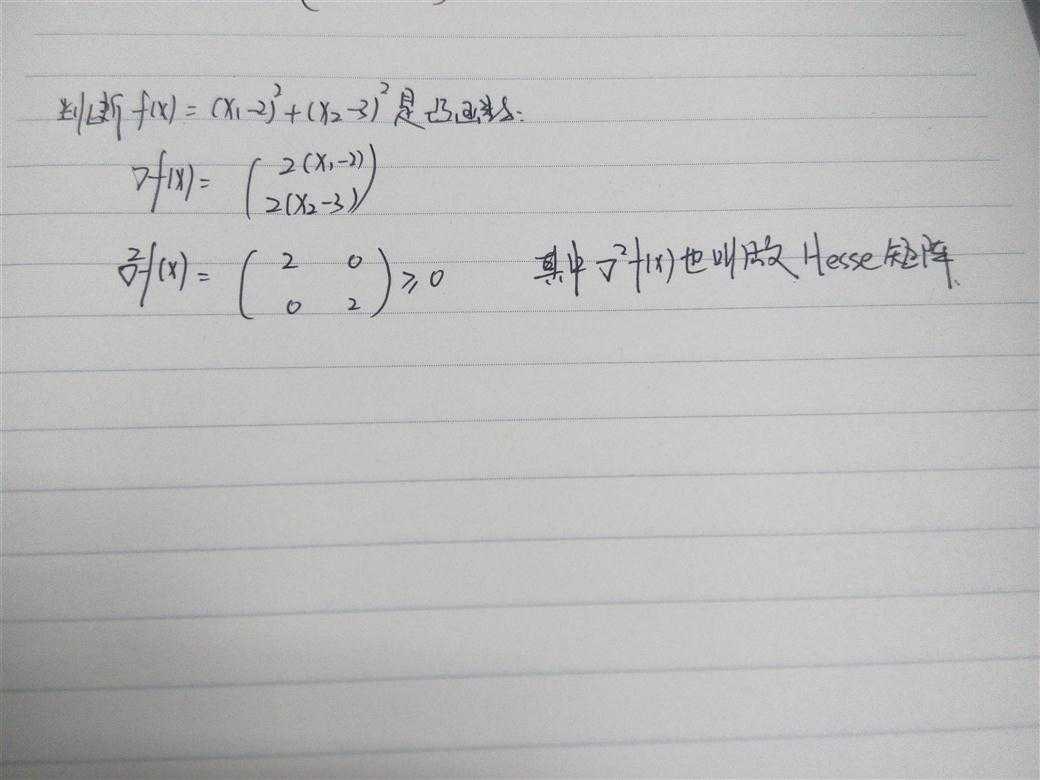 判断 f(x) = (x₁-2)² + (x₂-3)² 是凸函数:
∇f(x) = ( 2(x₁-2)
2(x₂-3) )
∇²f(x) = ( 2 0
0 2 ) ≥ 0 其中 ∇²f(x) 也叫做 Hesse 矩阵.